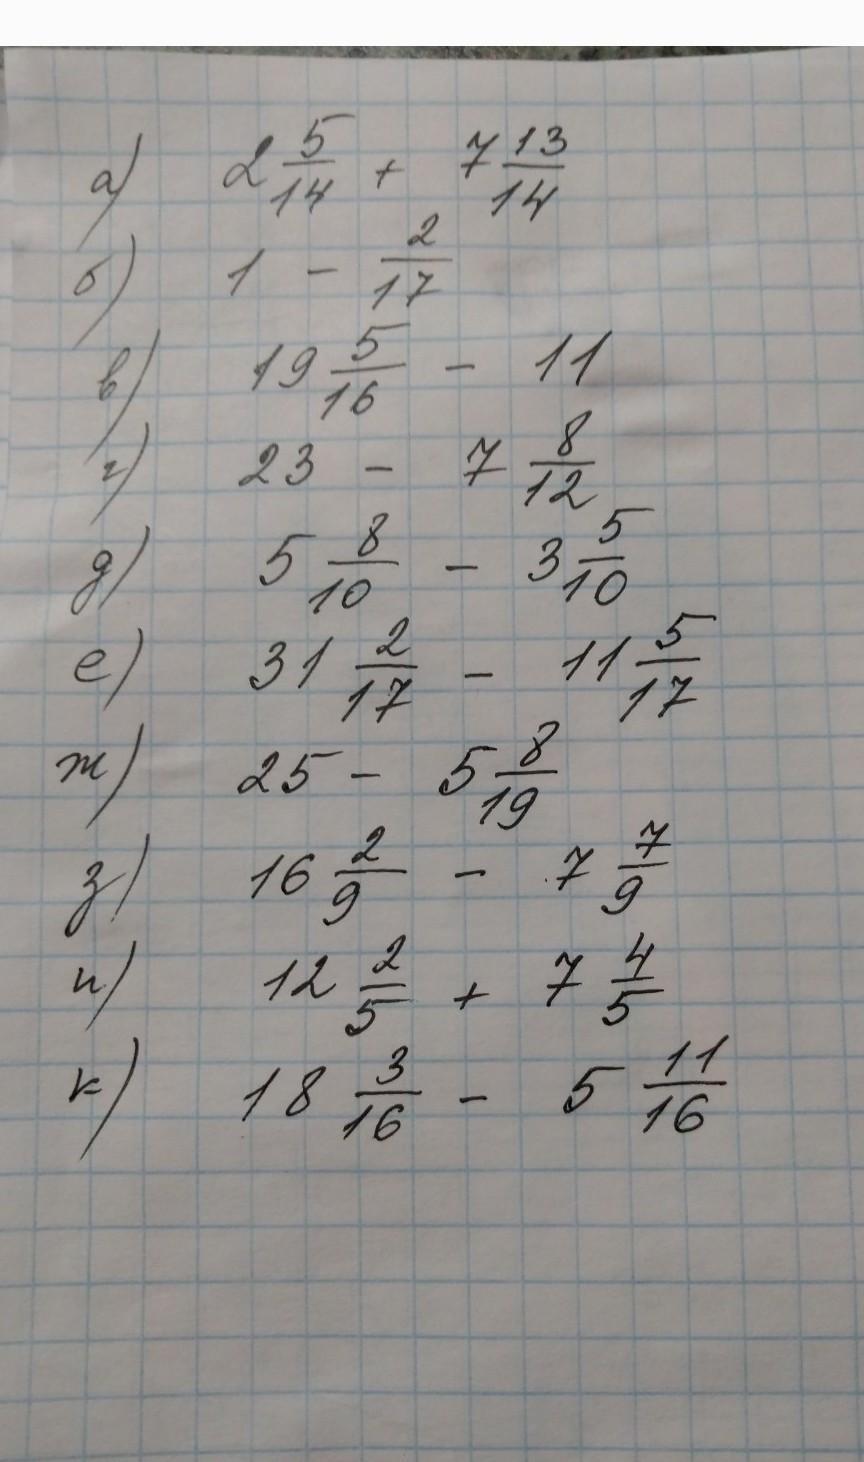 а) 2 5/14 + 7 13/14
б) 1 - 2/17
в) 19 5/16 - 11
г) 23 - 7 8/12
д) 5 8/10 - 3 5/10
е) 31 2/17 - 11 5/17
ж) 25 - 5 8/19
з) 16 2/9 - 7 7/9
и) 12 2/5 + 7 4/5
к) 18 3/16 - 5 11/16